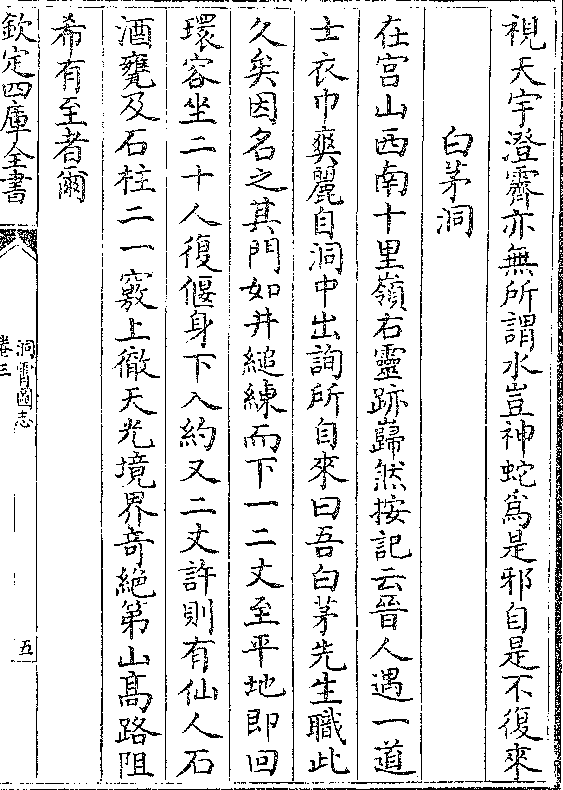 視天宇澄霽亦無所謂水豈神蛇為是邪自是不復來
白茅洞
在宫山西南十里嶺右靈跡巋然按記云晉人遇一道
士衣巾爽麗自洞中出詢所自來曰吾白茅先生職此
久矣因名之其門如井縋練而下一二丈至平地即回
環容坐二十人復偃身下入約又二丈許則有仙人石
酒甕及石柱二一竅上徹天光境界奇絶第山髙路阻
希有至者爾
欽定四庫全書
洞霄圖志
卷三
五